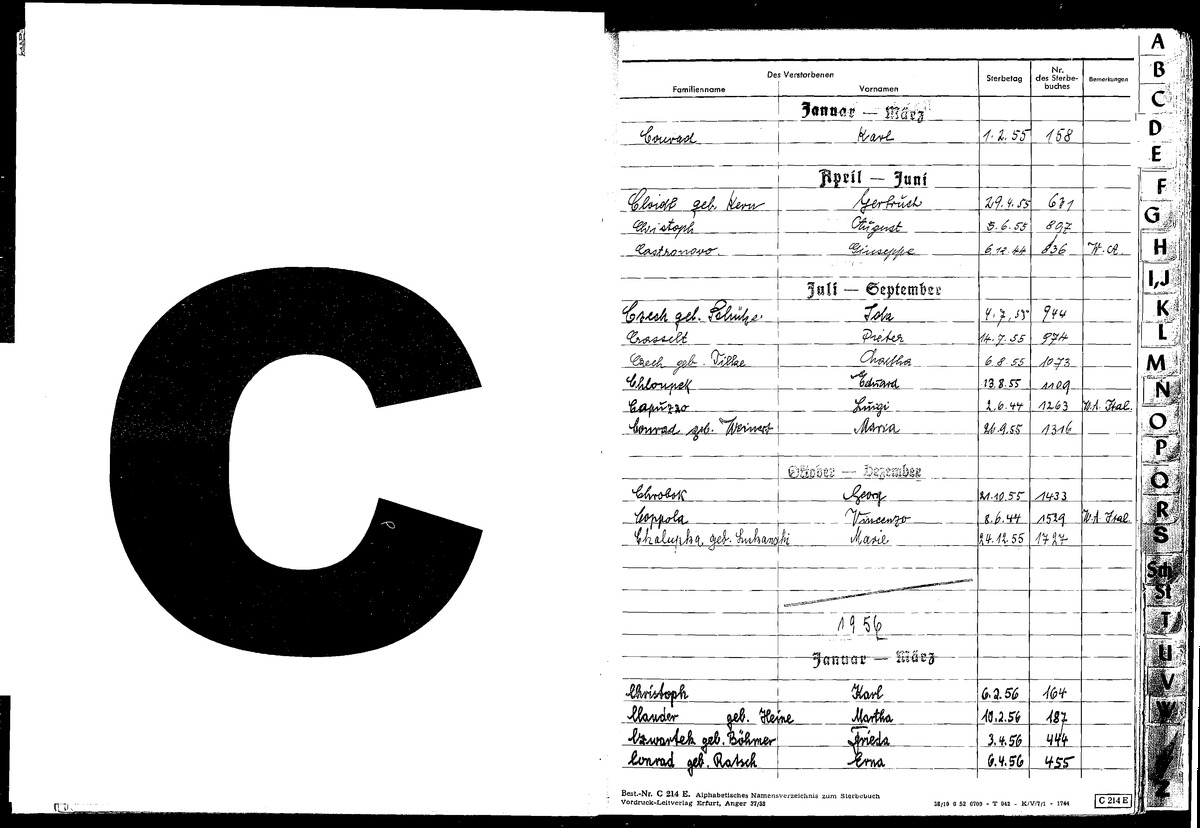 C
Des Verstorbenen
Familienname Vornamen Sterbetag Nr. des Sterbebuches Bemerkungen
Januar — März
Conrad Karl 1.2.55 158
April — Juni
geb. Kern Gertrud 29.4.55 681
Christoph August 3.6.55 897
Castronovo. Giuseppe 6.12.44 836 W.A.
Juli — September
Czech geb. Schütze Ida 4.7.55 944
Crasselt Dieter 14.7.55 974
Czech geb. Tilke Martha 6.8.55 1073
Chloupek Eduard 13.8.55 1109
Capuzzo Luigi 2.6.44 1263 W.A. Ital.
Conrad geb. Weinert Maria 26.9.55 1316
Oktober — Dezember
Chrobok Georg 21.10.55 1433
Coppola Vincenzo 8.6.44 1539 W.A. Ital.
Chalupka, geb. Marie 24.12.55 1727
1956
Januar — März
Christoph Karl 6.2.56 164
Clauder geb. Heine Martha 10.2.56 187
Czwartek geb. Böhmer Frieda 3.4.56 444
Conrad geb. Ratsch Erna 6.4.56 455
Best.-Nr. C 214 E. Alphabetisches Namensverzeichnis zum Sterbebuch
Vordruck-Leitverlag Erfurt, Anger 37/38
38/10 6 52 6709 - T 042 - K/V/7/1 - 1744
C 214 E
A
B
C
D
E
F
G
H
I,J
K
L
M
N
O
P
Q
R
S
Sch
St
T
U
V
W
Z